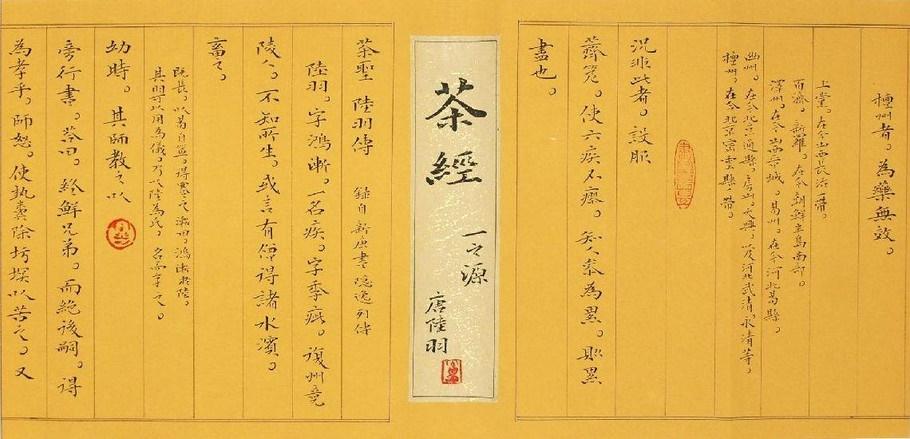 檀州者。為藥無效。
上黨。在今山西長治一帶。
百濟。新羅。在今朝鮮半島南部。
澤州。在今山西晉城。易州。在今河北易縣。
幽州。在今北京通縣。房山。大興。以及河北武清永清等。
檀州。在今北京密雲縣一帶。
況非此者。設服
薺苨。使六疾不瘳。知人參為累。則累
盡也。
茶經
一之源
唐陸羽
茶聖 陸羽傳 錄自新唐書隱逸列傳
陸羽。字鴻漸。一名疾。字季疵。復州竟
陵人。不知所生。或言有僧得諸水濱。
畜之。
既長。以易自筮。得蹇之漸曰。鴻漸於陸。
其羽可用為儀。乃以陸為氏。名而字之。
幼時。其師教之以
旁行書。答曰。終鮮兄弟。而絕後嗣。得
為孝乎。師怒。使執糞除圬塓以苦之。又